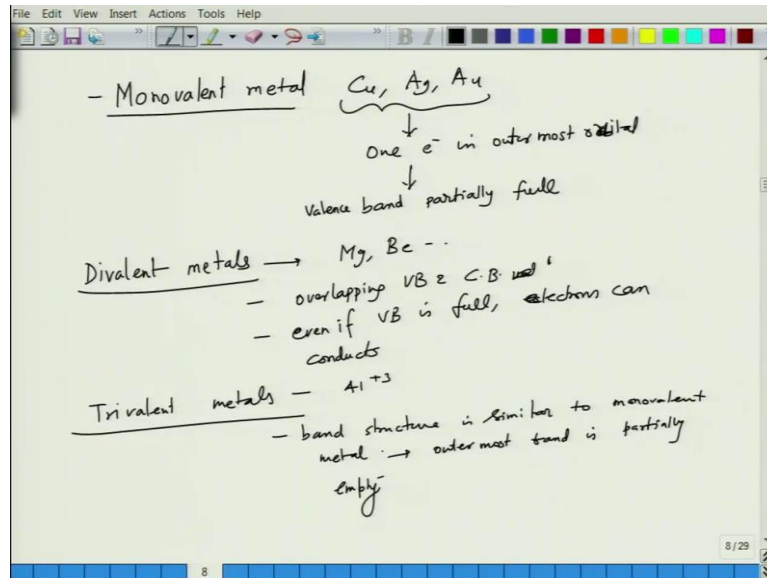 File Edit View Insert Actions Tools Help
B I
- Monovalent metal Cu, Ag, Au
↓
One e⁻ in outermost
↓
Valence band partially full
Divalent metals → Mg, Be --
- overlapping VB & C.B.
- even if VB is full, electrons can
conducts
Trivalent metals - Al⁺³
- band structure is similar to monovalent
metal → outermost band is partially
empty
8/29
8